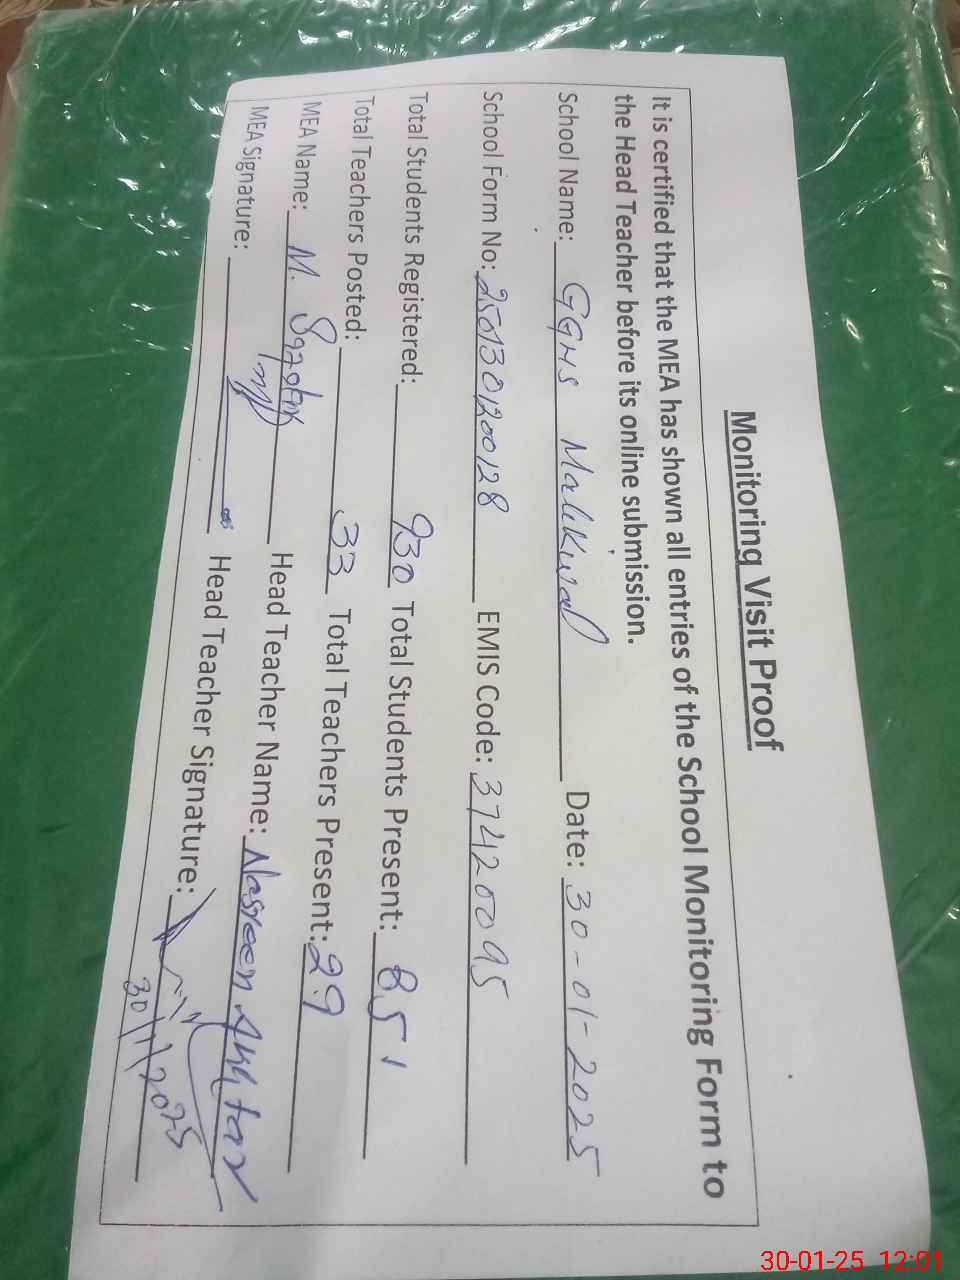 Monitoring Visit Proof
It is certified that the MEA has shown all entries of the School Monitoring Form to
the Head Teacher before its online submission.
School Name: GGHS Malikwal Date: 30-01-2025
School Form No: 2501301200128 EMIS Code: 37420095
Total Students Registered: 930 Total Students Present: 851
Total Teachers Posted: 33 Total Teachers Present: 29
MEA Name: M. Head Teacher Name: Nasreen Akhtar
MEA Signature: Head Teacher Signature:
30/1/2025
30-01-25 12:01